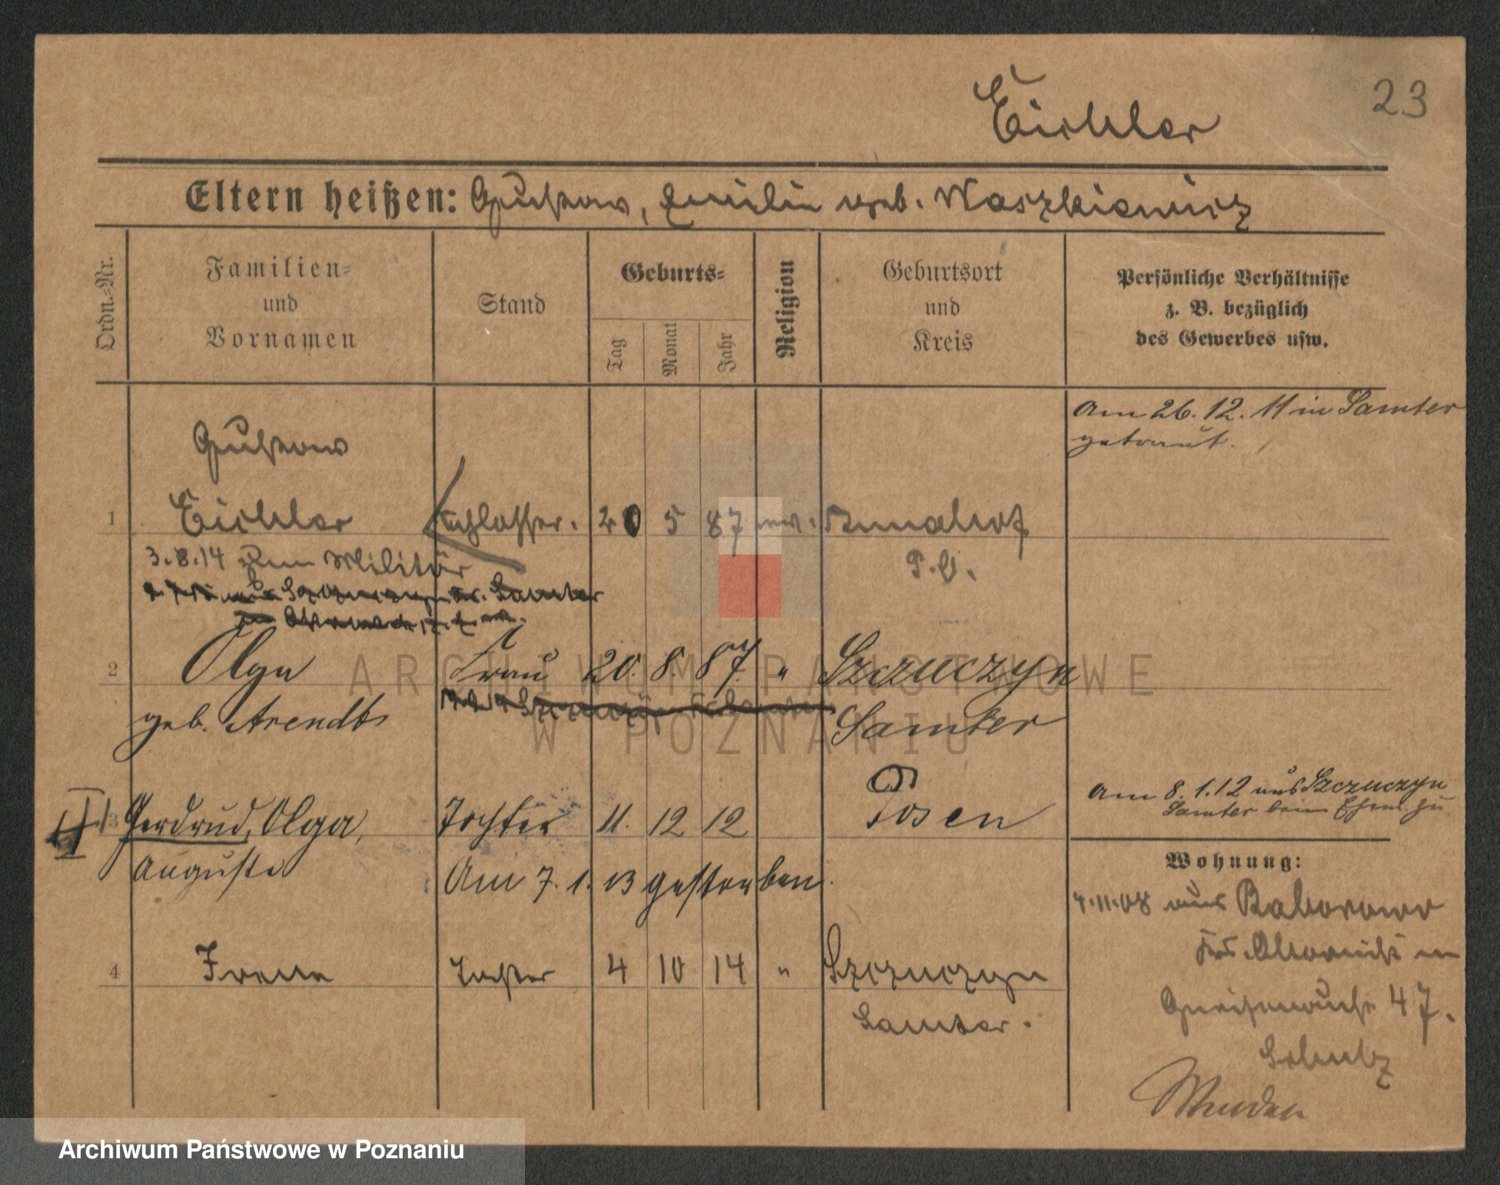 23
Eichler
Eltern heißen: Gustav, Emilie geb. Waszkiewicz
Ordn.-Nr.
Familien-
und
Vornamen
Stand
Geburts-
Tag
Monat
Jahr
Religion
Geburtsort
und
Kreis
Persönliche Verhältnisse
z. B. bezüglich
des Gewerbes usw.
Am 26. 12. 11 in Samter
getraut.
Gustav
1 Eichler Schlosser. 20 5 87 ev. Annahof
3.8.14 zum Militär P.O.
2 Olga Frau 20. 8. 87. " Szczuczyn
geb. Arendt Samter
Am 8. 1. 12 aus Szczuczyn
Samter
3 Gerdrud, Olga, Tochter 11. 12 12 Posen
Auguste Am 7. 1. 13 gestorben.
Wohnung:
4.11.08 aus Baborowo
Kr. Obornik
47.
4 Irene Tochter 4 10 14 " Szczuczyn
Samter.
Schulz
ARCHIWUM PAŃSTWOWE
W POZNANIU
Archiwum Państwowe w Poznaniu